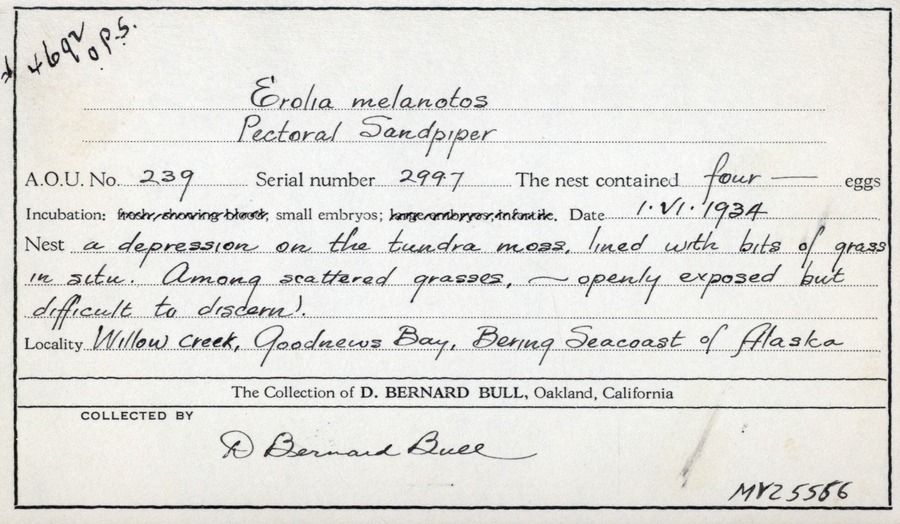 +692
o.p.s.
Erolia melanotos
Pectoral Sandpiper
A.O.U. No. 239 Serial number 2997 The nest contained four — eggs
Incubation: fresh, showing blood, small embryos; large embryos, infertile. Date 1·VI·1934
Nest a depression on the tundra moss, lined with bits of grass
in situ. Among scattered grasses, ~ openly exposed but
difficult to discern!.
Locality Willow Creek, Goodnews Bay, Bering Seacoast of Alaska
The Collection of D. BERNARD BULL, Oakland, California
COLLECTED BY
D Bernard Bull
MVZ 5566